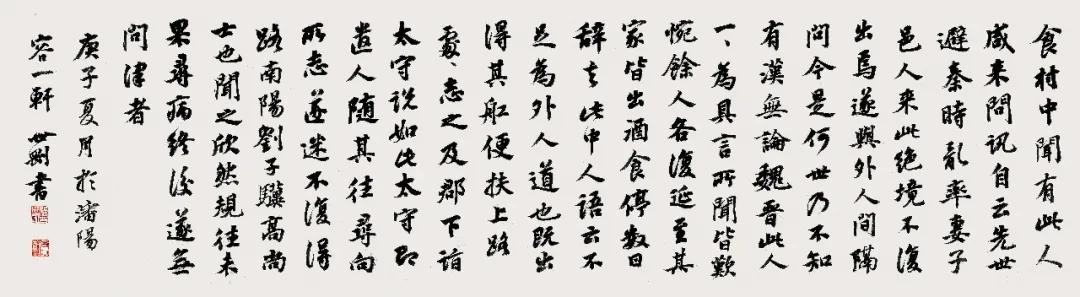 食村中聞有此人
咸来問訊自云先世
避秦時亂率妻子
邑人来此絶境不復
出焉遂與外人間隔
問今是何世乃不知
有漢無論魏晉此人
一、為具言所聞皆歎
惋餘人各復延至其
家皆出酒食停数日
辭去此中人語云不
足為外人道也既出
得其舡便扶上路
處、志之及郡下詣
太守説如此太守即
遣人随其往尋向
所志遂迷不復得
路南陽劉子驥高尚
士也聞之欣然規往未
果尋病終後遂無
問津者
庚子夏月於瀋陽
容一軒 世剛書